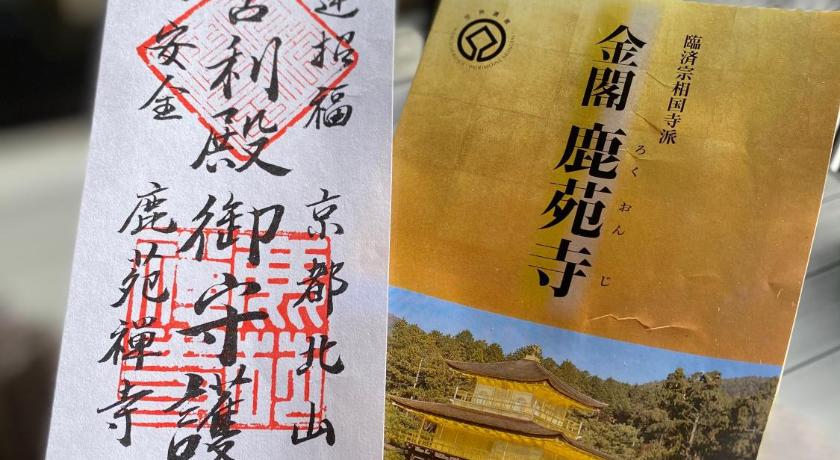 運招福
京都北山
舎利殿御守護
安全
鹿苑禪寺
臨済宗相国寺派
金閣 鹿苑寺
ろくおんじ